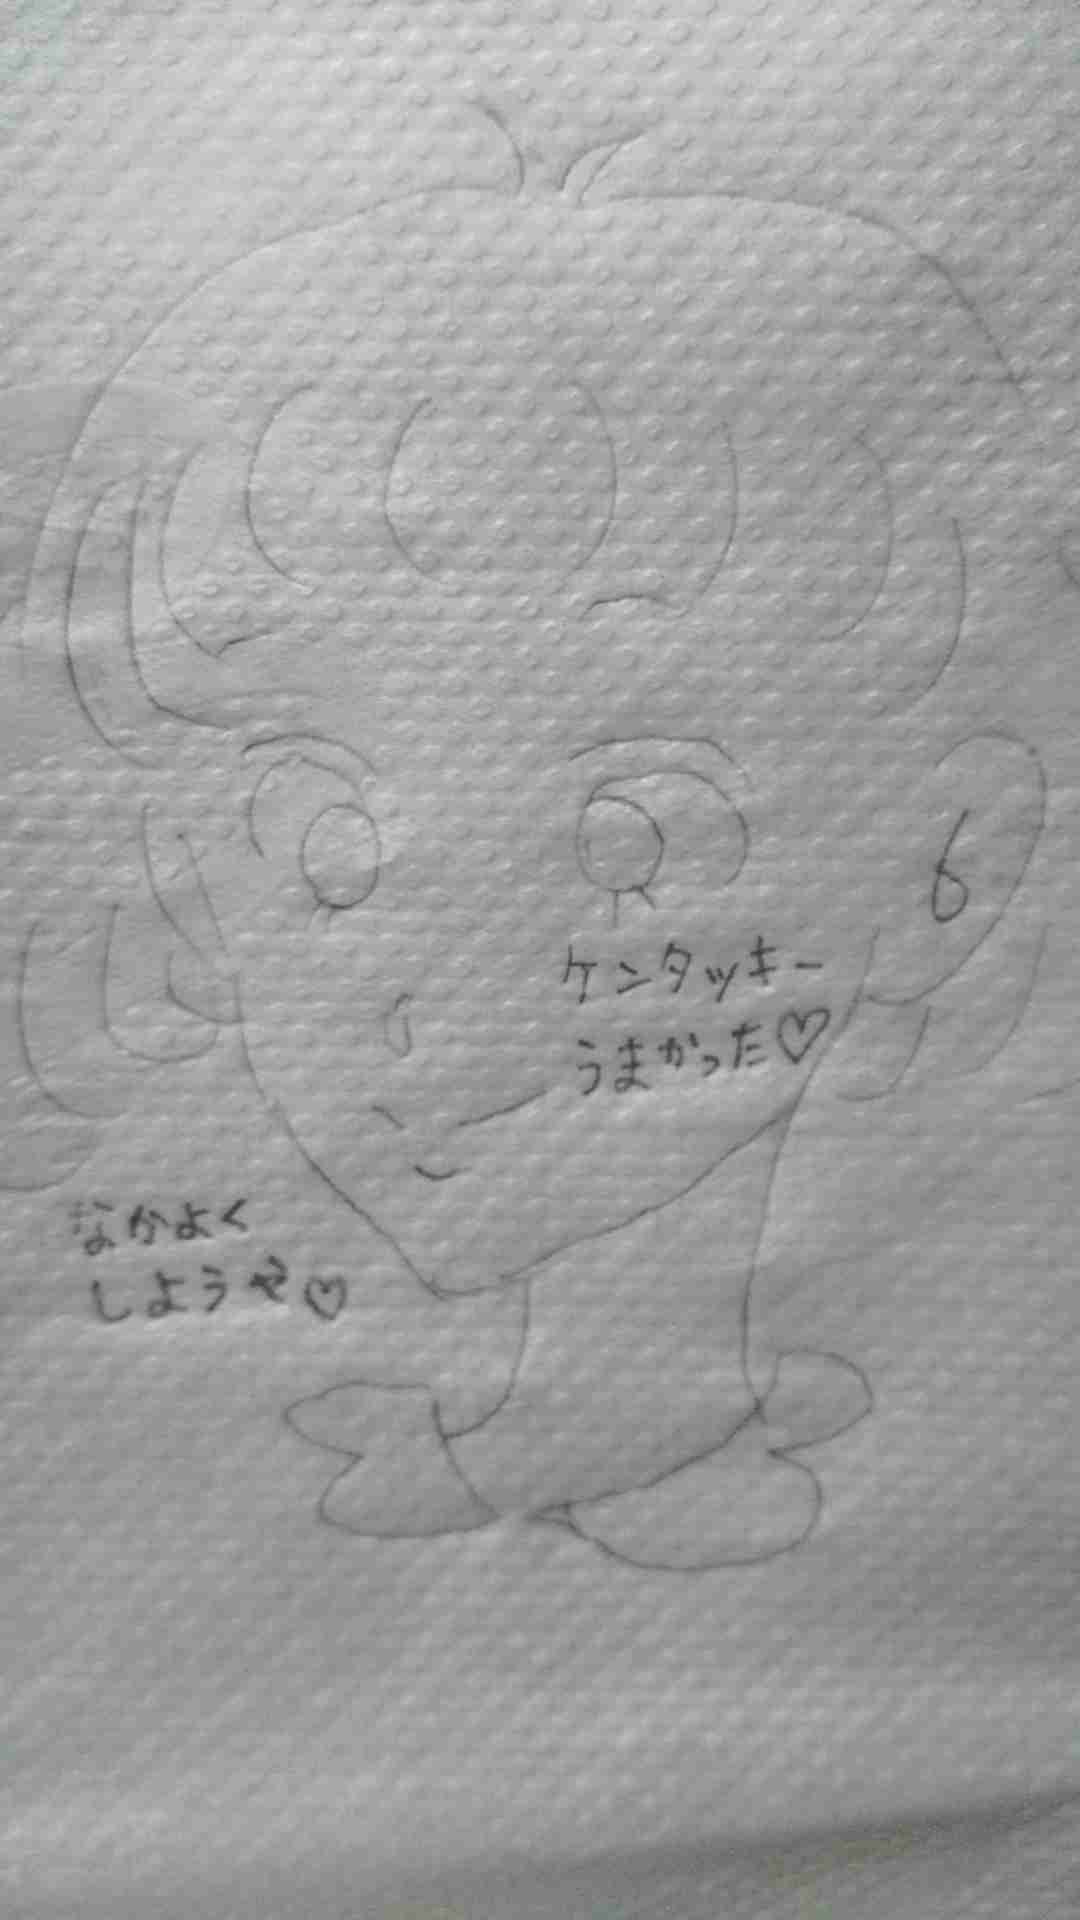 ケンタッキー
うまかった♡
なかよく
しようや♡